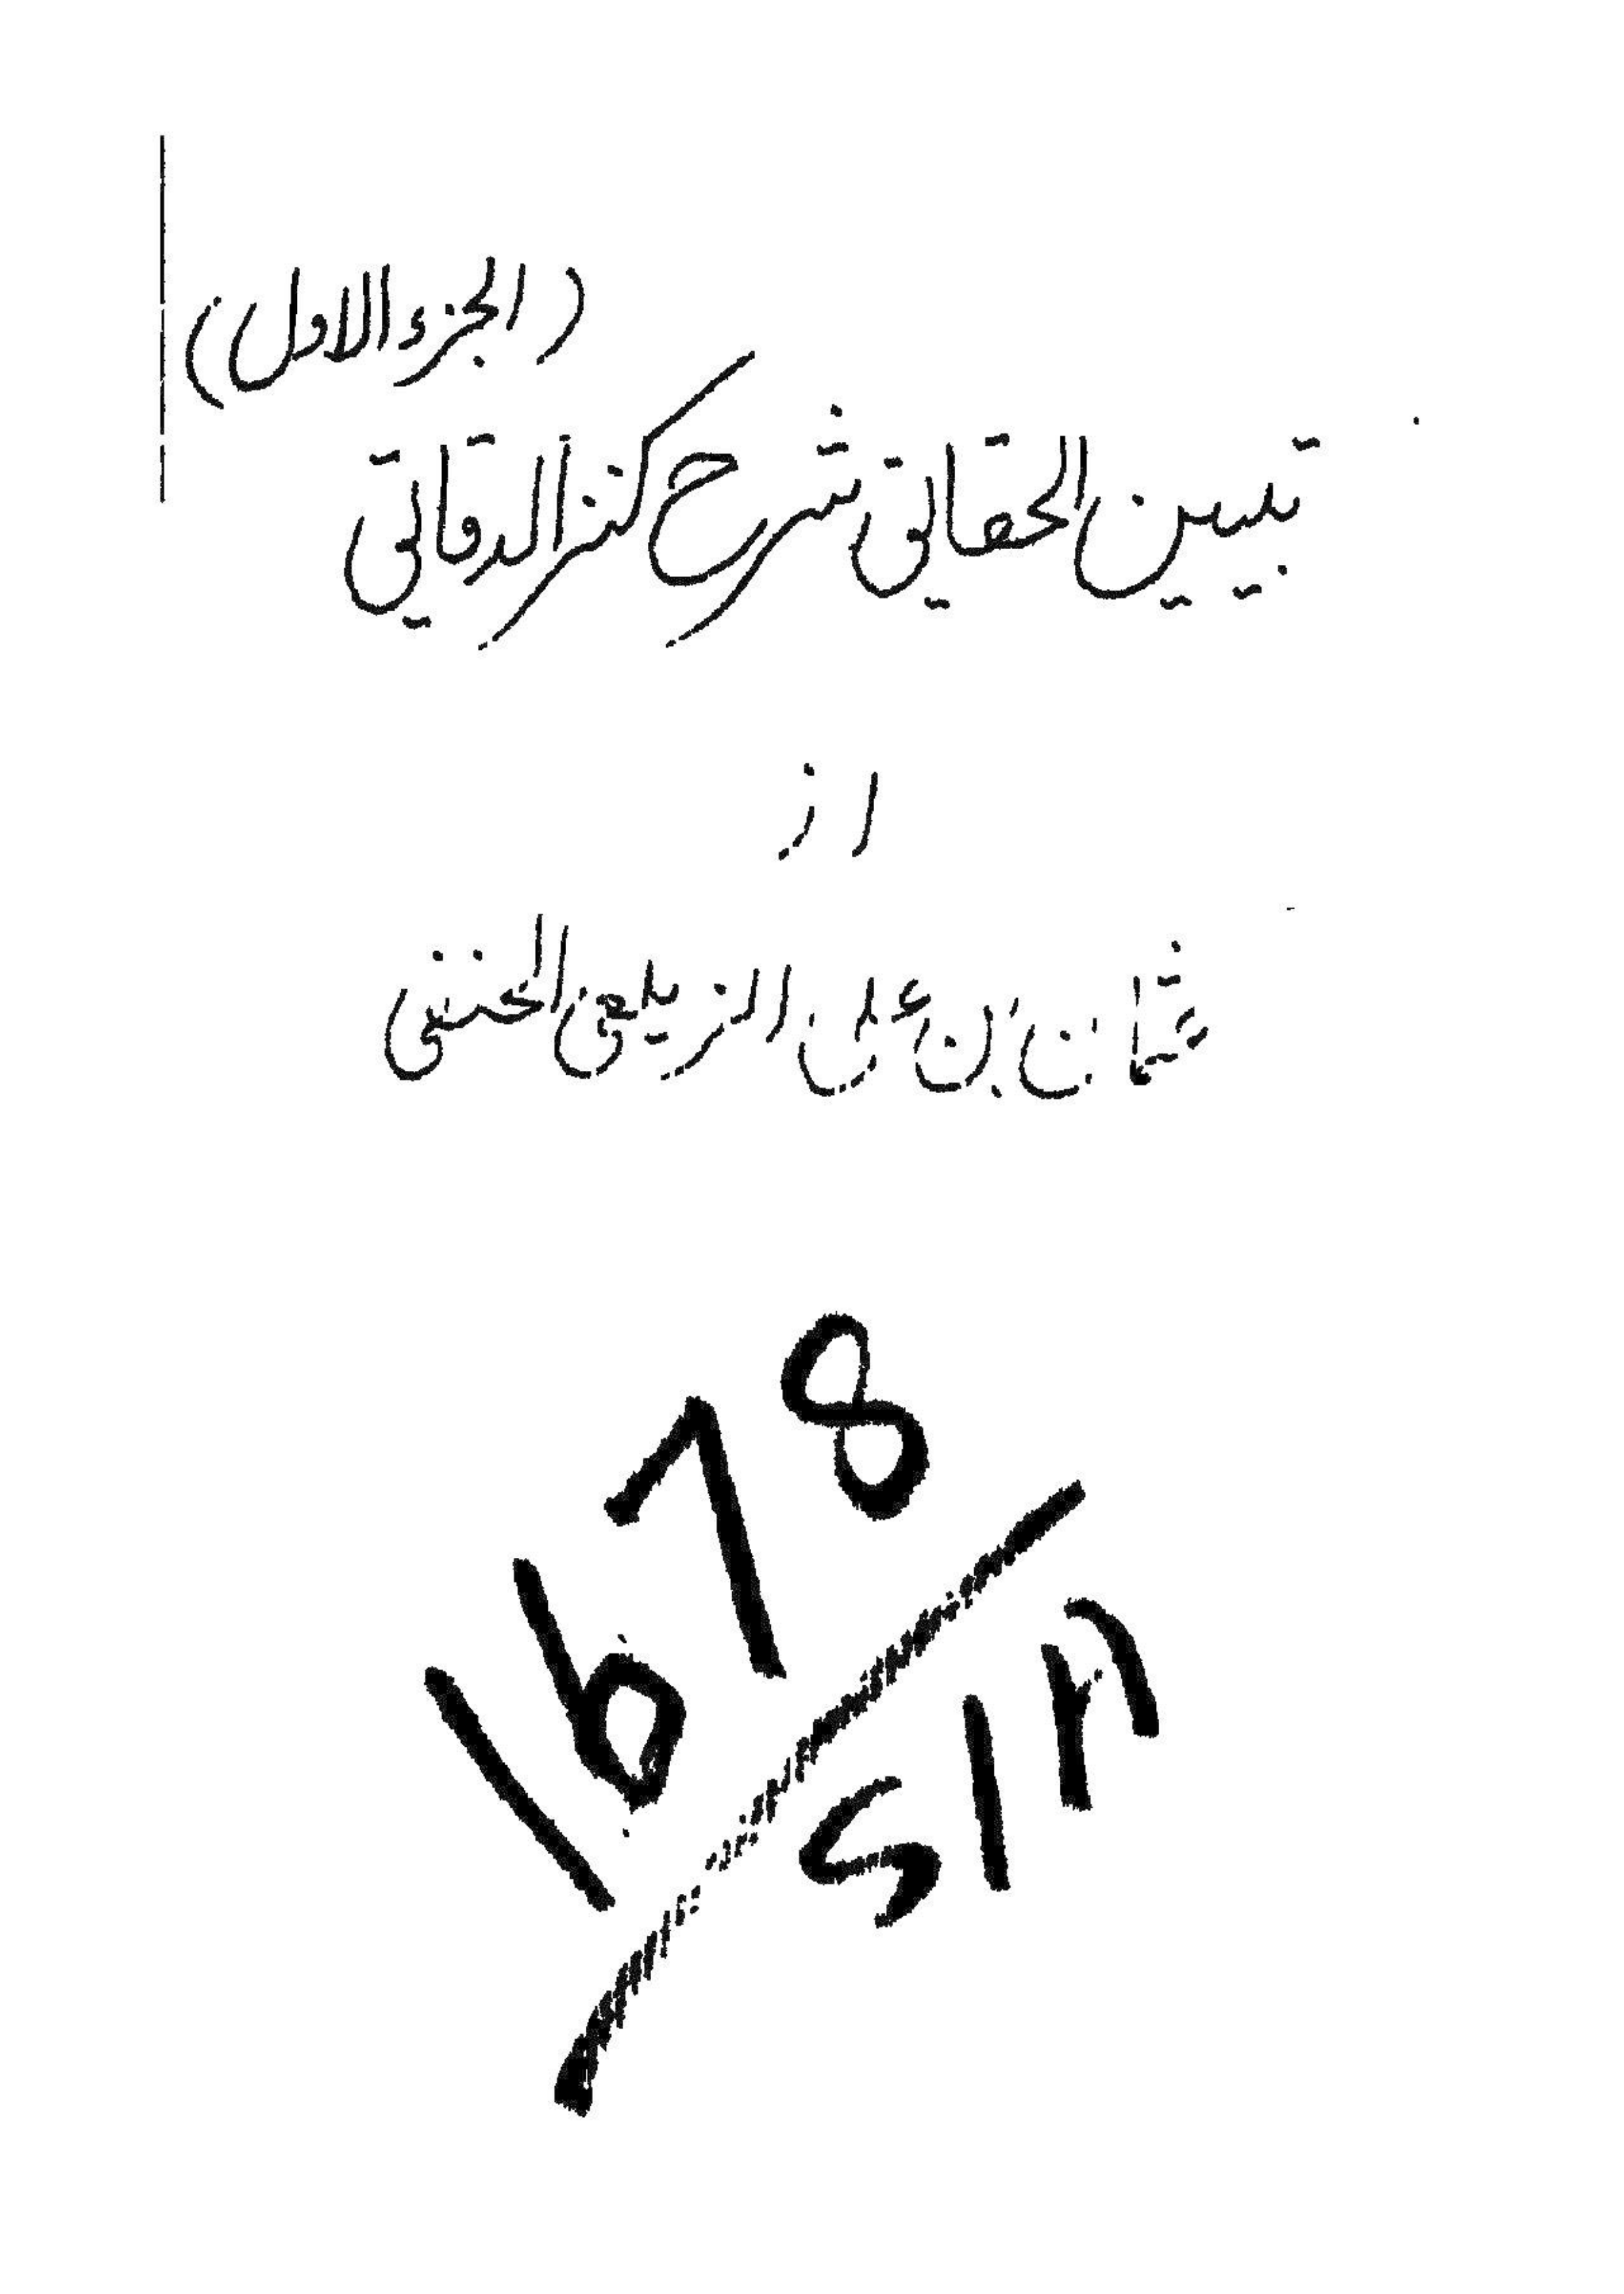 (الجزء الاول)
تبيين الحقايق شرح كنز الدقايق
از
عثمان بن على الزيلعى الحنفى
1678
SIH